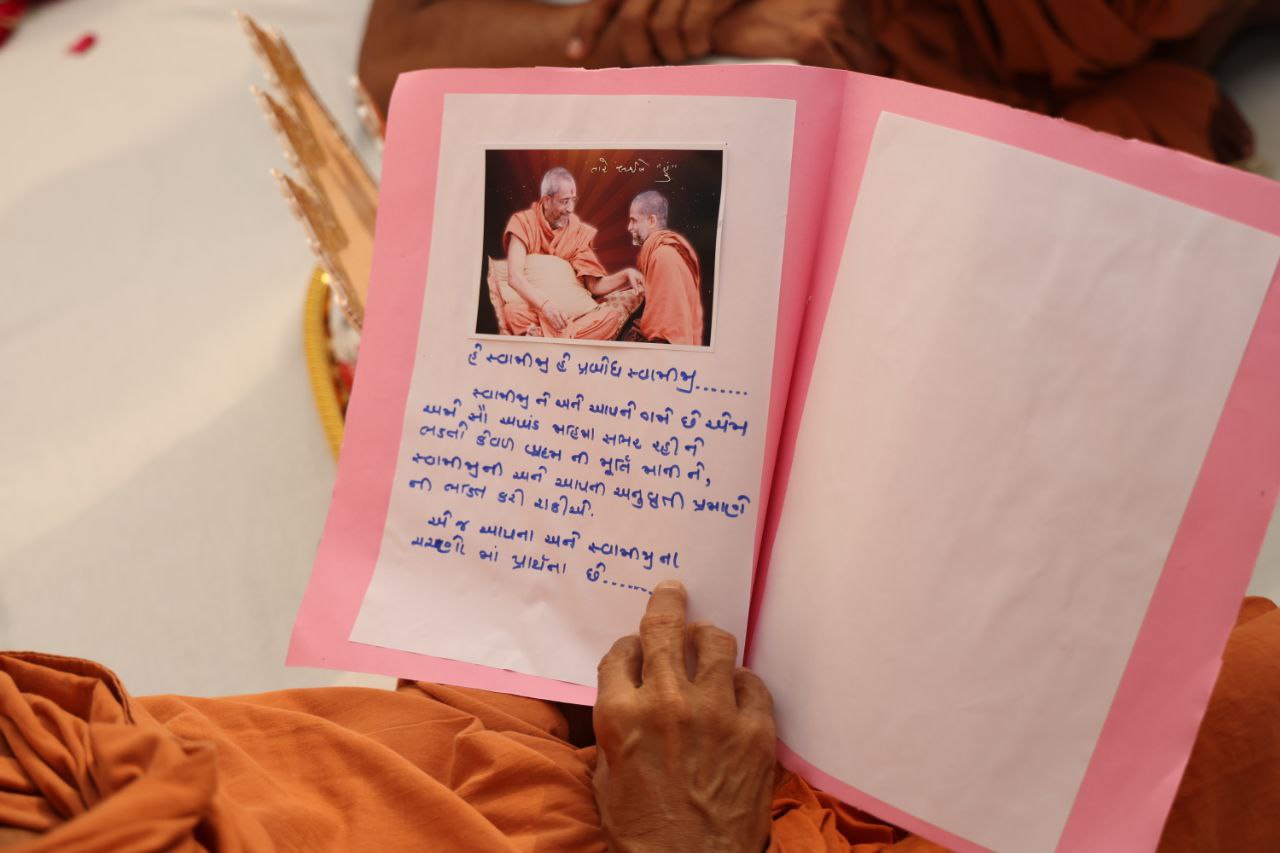 તારે અર્થે "હું"
હે સ્વામીજી હે પ્રબોધ સ્વામીજી.......
સ્વામીજી ને અને આપને ગમે છે એમ
અમે સૌ અખંડ મહિમા સભર રહી ને
ભક્તો કેવળ બ્રહ્મ ની મૂર્તિ માની ને,
સ્વામીજીની અને આપની અનુવૃત્તી પ્રમાણે
ની ભક્તિ કરી શકીએ.
એ જ આપના અને સ્વામીજી ના
ચરણો માં પ્રાર્થના છે.......